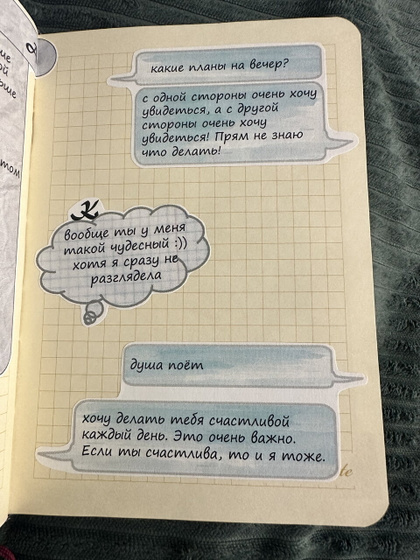 ше
ой
ьше
том
какие планы на вечер?
с одной стороны очень хочу
увидеться, а с другой
стороны очень хочу
увидеться! Прям не знаю
что делать!
К
вообще ты у меня
такой чудесный :))
хотя я сразу не
разглядела
душа поёт
хочу делать тебя счастливой
каждый день. Это очень важно.
Если ты счастлива, то и я тоже.
te